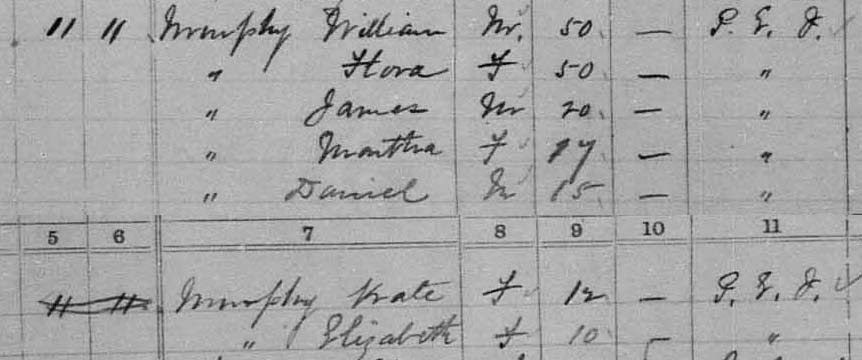 " " Murphy William M. 50 — P. E. I.
" Flora F 50 — "
" James M 20 — "
" Martha F 17 — "
" Daniel M 15 — "
5 6 7 8 9 10 11
" " Murphy Kate F 12 — P. E. I.
" Elizabeth F 10 — "